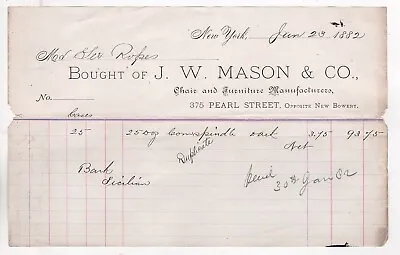 New York, Jan 23 1882
Ropes
BOUGHT OF J. W. MASON & CO.,
Chair and Furniture Manufacturers,
No.
375 PEARL STREET, OPPOSITE NEW BOWERY.
cases
25 25 Dog Comspindle 3.75 93.75
Duplicate Net
Bark
Sicilian
30th Jan 82